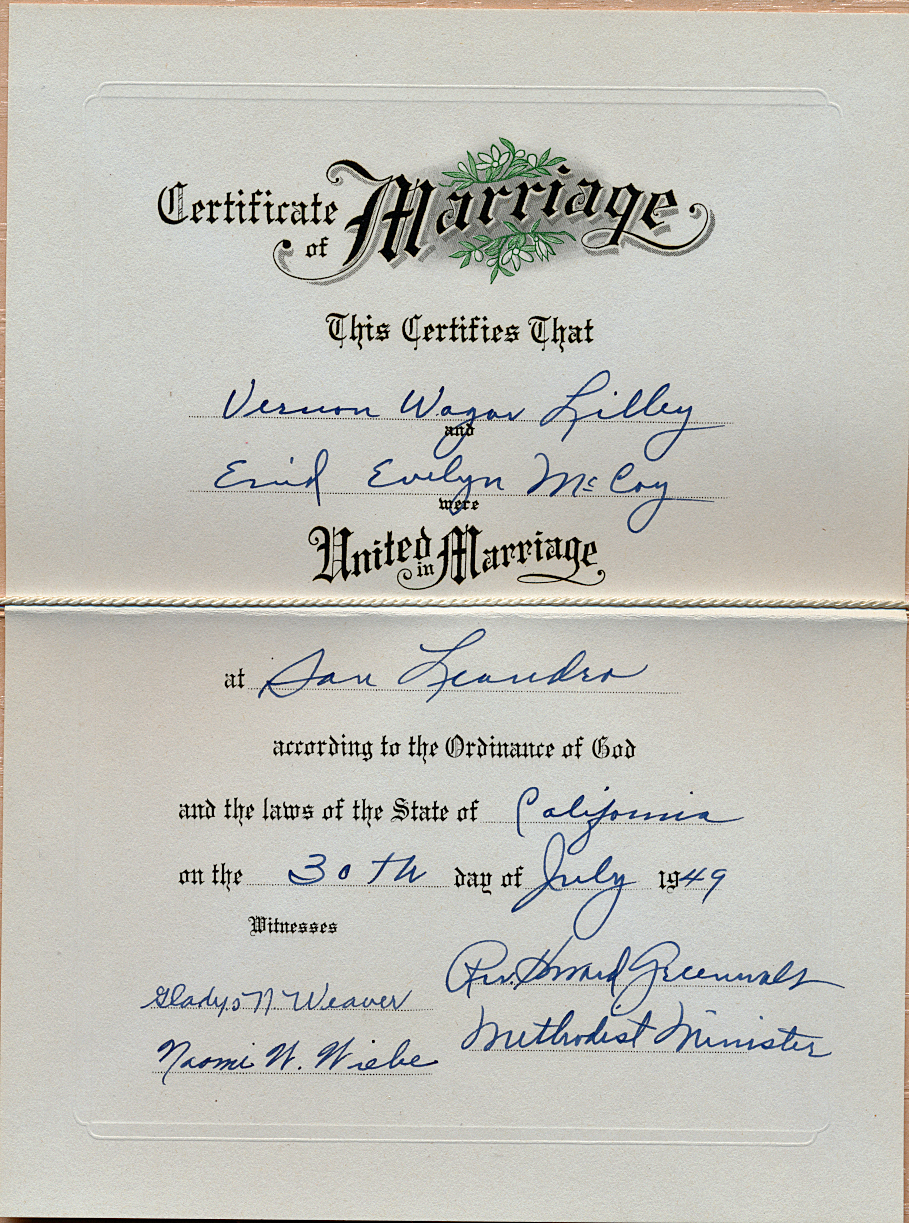 Certificate
of Marriage
This Certifies That
Vernon Wagar Lilley
and
Enid Evelyn McCoy
were
United in Marriage
at San Leandro
according to the Ordinance of God
and the laws of the State of California
on the 30TH day of July 1949
Witnesses
Rev. Howard Greenwalt
Gladys N Weaver
Methodist Minister
Naomi W. Wiebe